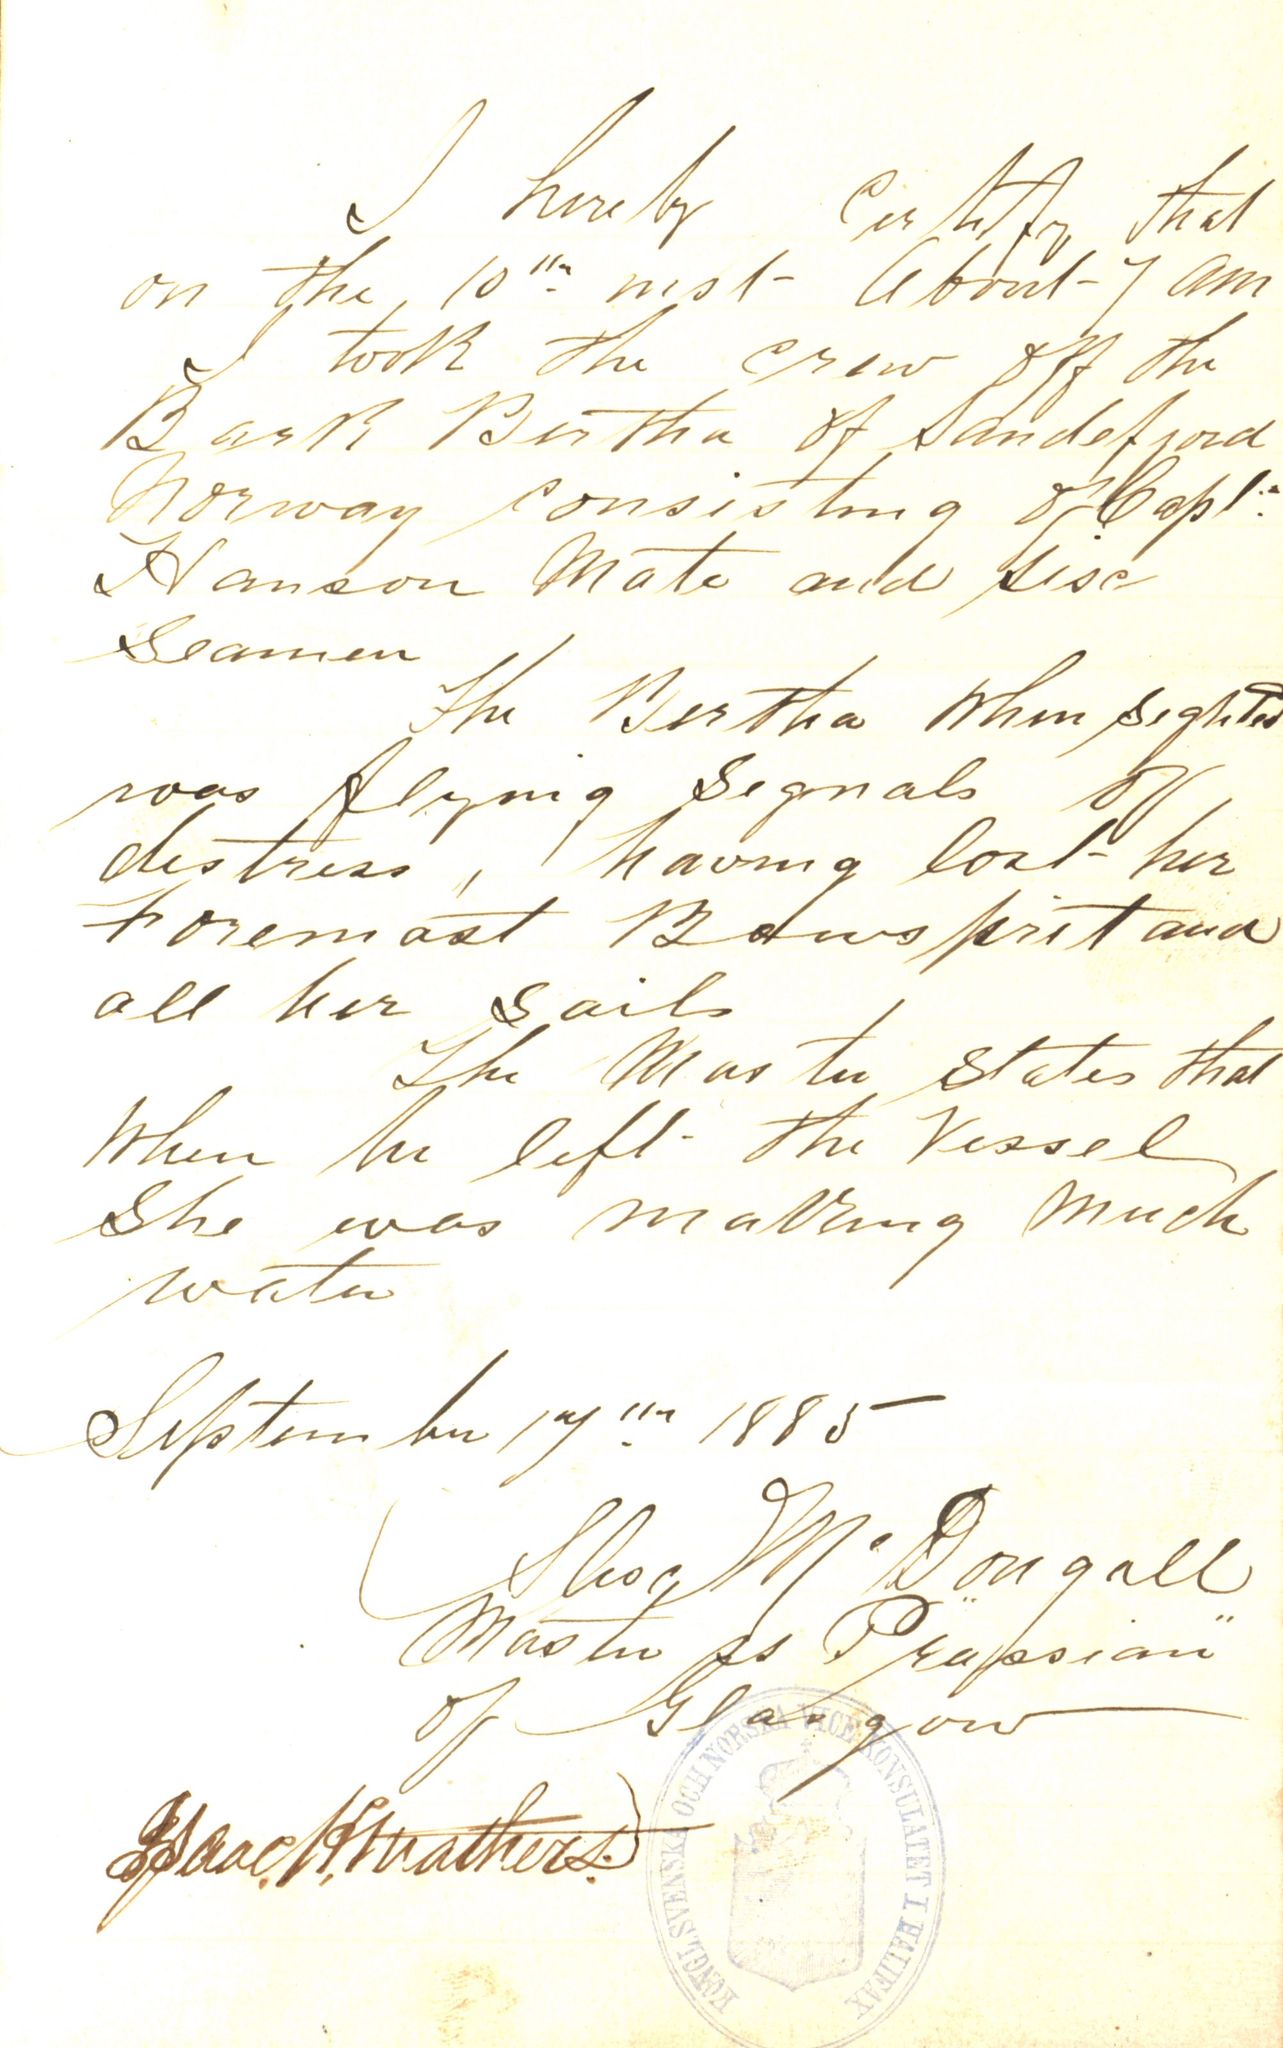 I hereby Certify that
on the 10th inst About 7 am
I took the crew off the
Bark Bertha of Sandefjord
Norway consisting of Capt:
Hanson Mate and six
Seamen
The Bertha when sighted
was flying signals of
distress, having lost her
Foremast Bowsprit and
all her sails
The Master states that
When he left the Vessel
She was making much
water
September 17th 1885
McDougall
Master ss "Prussian"
of Glasgow
Isaac H. Mathers.
KONGL. SVENSKA OCH NORSKA VICE KONSULATET I HALIFAX